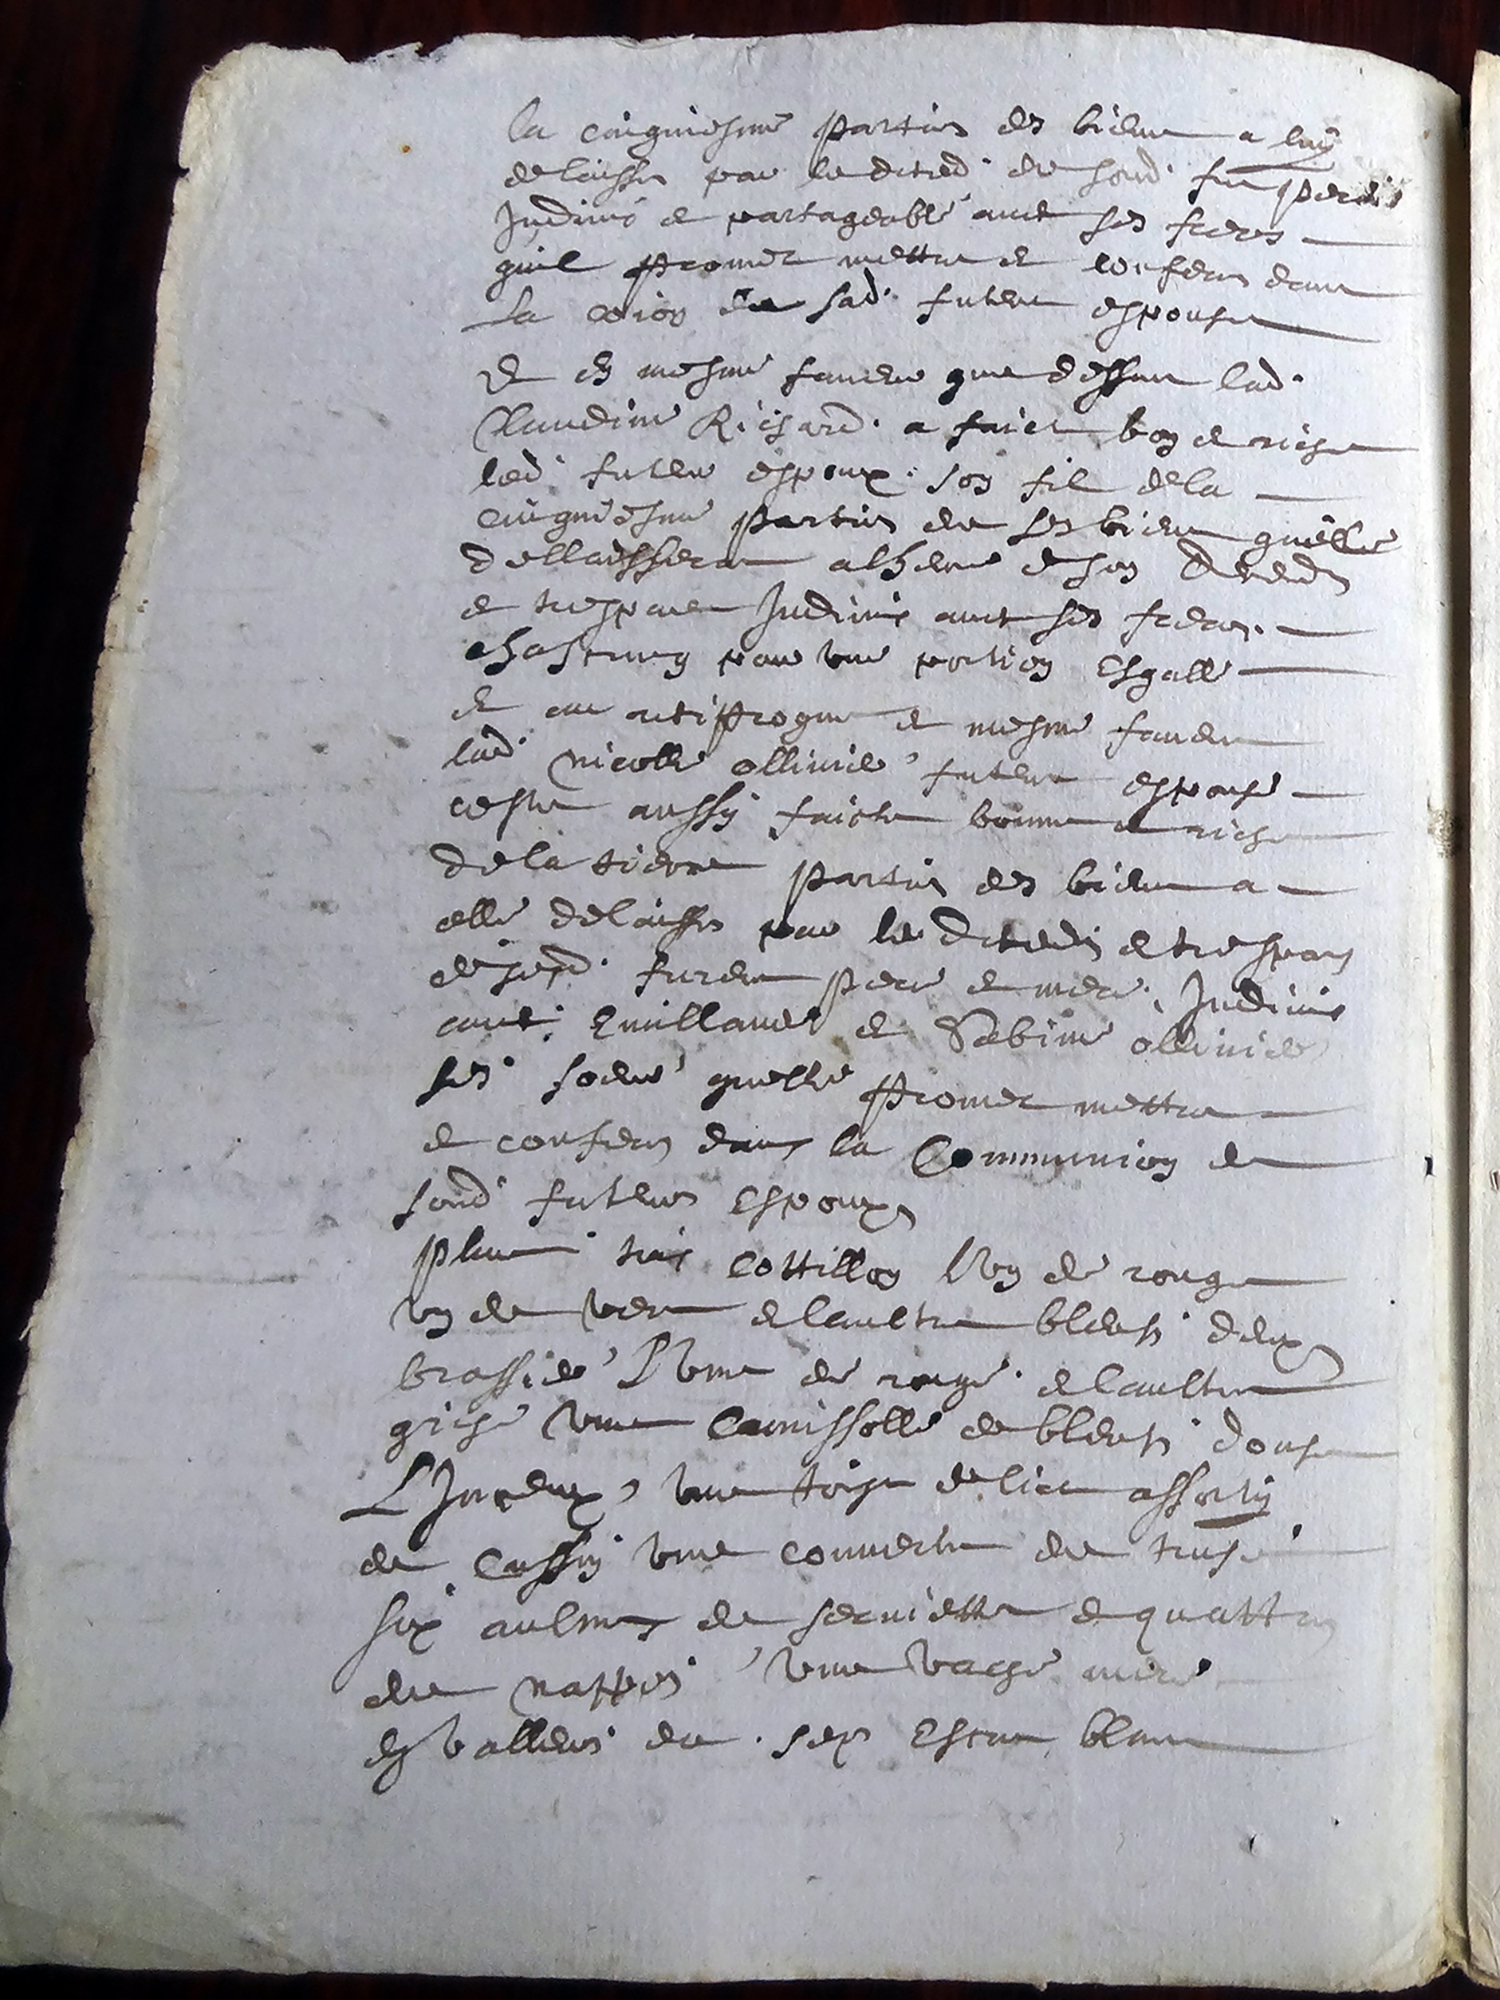 la cinquiesme partie des biens a luy
delaissés par le deced. de sond. fut pere
Indivis et partageable avec ses freres
quil promet mettre et conferer dans
La coion de sad. future espouse
Et en mesme faveur que dessus lad.
Claudine Richard. a faict bon et riche
led. futeur espoux. son fil de la
cinquiesme partie de ses biens quelle
dellaissera alheure de son deceds
et trespas Indivis avec ses freres.
chascung par une portion Esgalle
Et au reciproque et mesme faveur
lad. Nicolle ollivier future espouse
cestes aussy faicte bonne et riche
de la tierce partie des biens a
elle delaissés par le deceds et trespas
de sesd. furent pere et mere. Indivis
avec. Emillande et Sebine ollivier
ses soeurs quelle promet mettre
et conferer dans la Communion de
sond futeur Espoux
plus trois Cottillon L'un de rouge
un de vert et laultre bleuf deux
brassier L'une de rouge. et laultre
grise une Camissolle de bleuf douse
Linceux, une toise de lict assorty
de Cussin une couverte de
six aulnes de serviette et quattre
de nappes une vache mere
de valleur de. sep Escus blanc